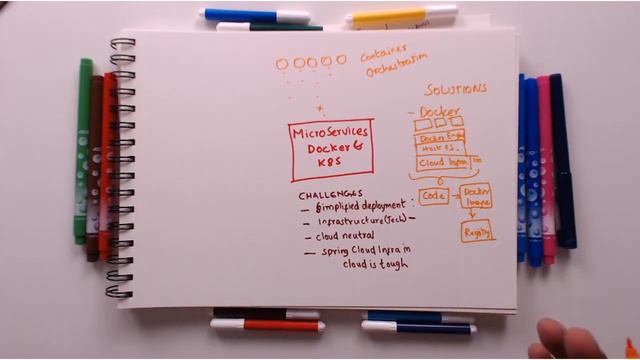 Container
Orchestration
SOLUTIONS
- Docker
Docker Eng
Host OS.
Cloud Infra
Code
Docker
Image
MicroServices
Docker &
K8S
CHALLENGES
- Simplified deployment :
- Infrastructure (Tech) -
- cloud neutral
- spring Cloud Infra in
cloud is tough